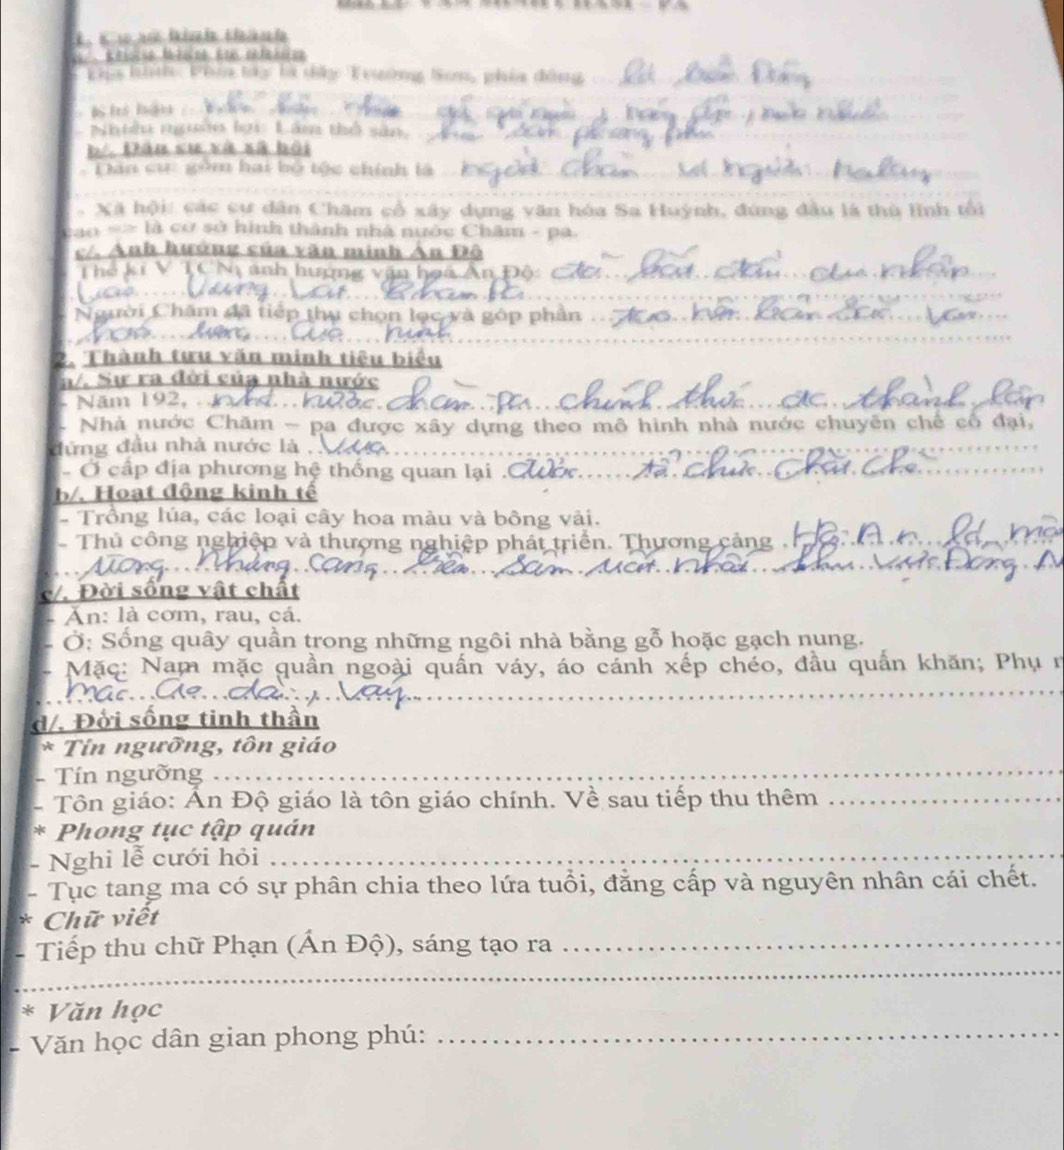 1. Cơ sở hình thành
a/. Điều kiện tự nhiên
Địa hình: Phía tây là dãy Trường Sơn, phía đông là biển Đông
- Khí hậu
- Nhiều nguồn lợi: Lâm thổ sản,
b/. Dân cư và xã hội
- Dân cư: gồm hai bộ tộc chính là người chăm và người
- Xã hội: các cư dân Chăm cổ xây dựng văn hóa Sa Huỳnh, đứng đầu là thủ lĩnh tối
cao => là cơ sở hình thành nhà nước Chăm - pa.
c/. Ảnh hưởng của văn minh Ấn Độ
- Thế kỉ V TCN, ảnh hưởng văn hoá Ấn Độ:
- Người Chăm đã tiếp thu chọn lọc và góp phần
2. Thành tựu văn minh tiêu biểu
a/. Sự ra đời của nhà nước
- Năm 192, nhà nước chăm pa chính thức thành lập
- Nhà nước Chăm – pa được xây dựng theo mô hình nhà nước chuyên chế cổ đại,
đứng đầu nhà nước là Vua
- Ở cấp địa phương hệ thống quan lại được tổ chức
b/. Hoạt động kinh tế
- Trồng lúa, các loại cây hoa màu và bông vải.
- Thủ công nghiệp và thương nghiệp phát triển. Thương cảng Hội A n là mộ
trong những cảng biển sầm uất nhất khu vực Đông N
c/. Đời sống vật chất
- Ăn: là cơm, rau, cá.
- Ở: Sống quây quần trong những ngôi nhà bằng gỗ hoặc gạch nung.
- Mặc: Nam mặc quần ngoài quấn váy, áo cánh xếp chéo, đầu quấn khăn; Phụ n
mặc áo dài, váy
d/. Đời sống tinh thần
* Tín ngưỡng, tôn giáo
- Tín ngưỡng
- Tôn giáo: Ấn Độ giáo là tôn giáo chính. Về sau tiếp thu thêm
* Phong tục tập quán
- Nghi lễ cưới hỏi
- Tục tang ma có sự phân chia theo lứa tuổi, đẳng cấp và nguyên nhân cái chết.
* Chữ viết
- Tiếp thu chữ Phạn (Ấn Độ), sáng tạo ra
* Văn học
- Văn học dân gian phong phú: